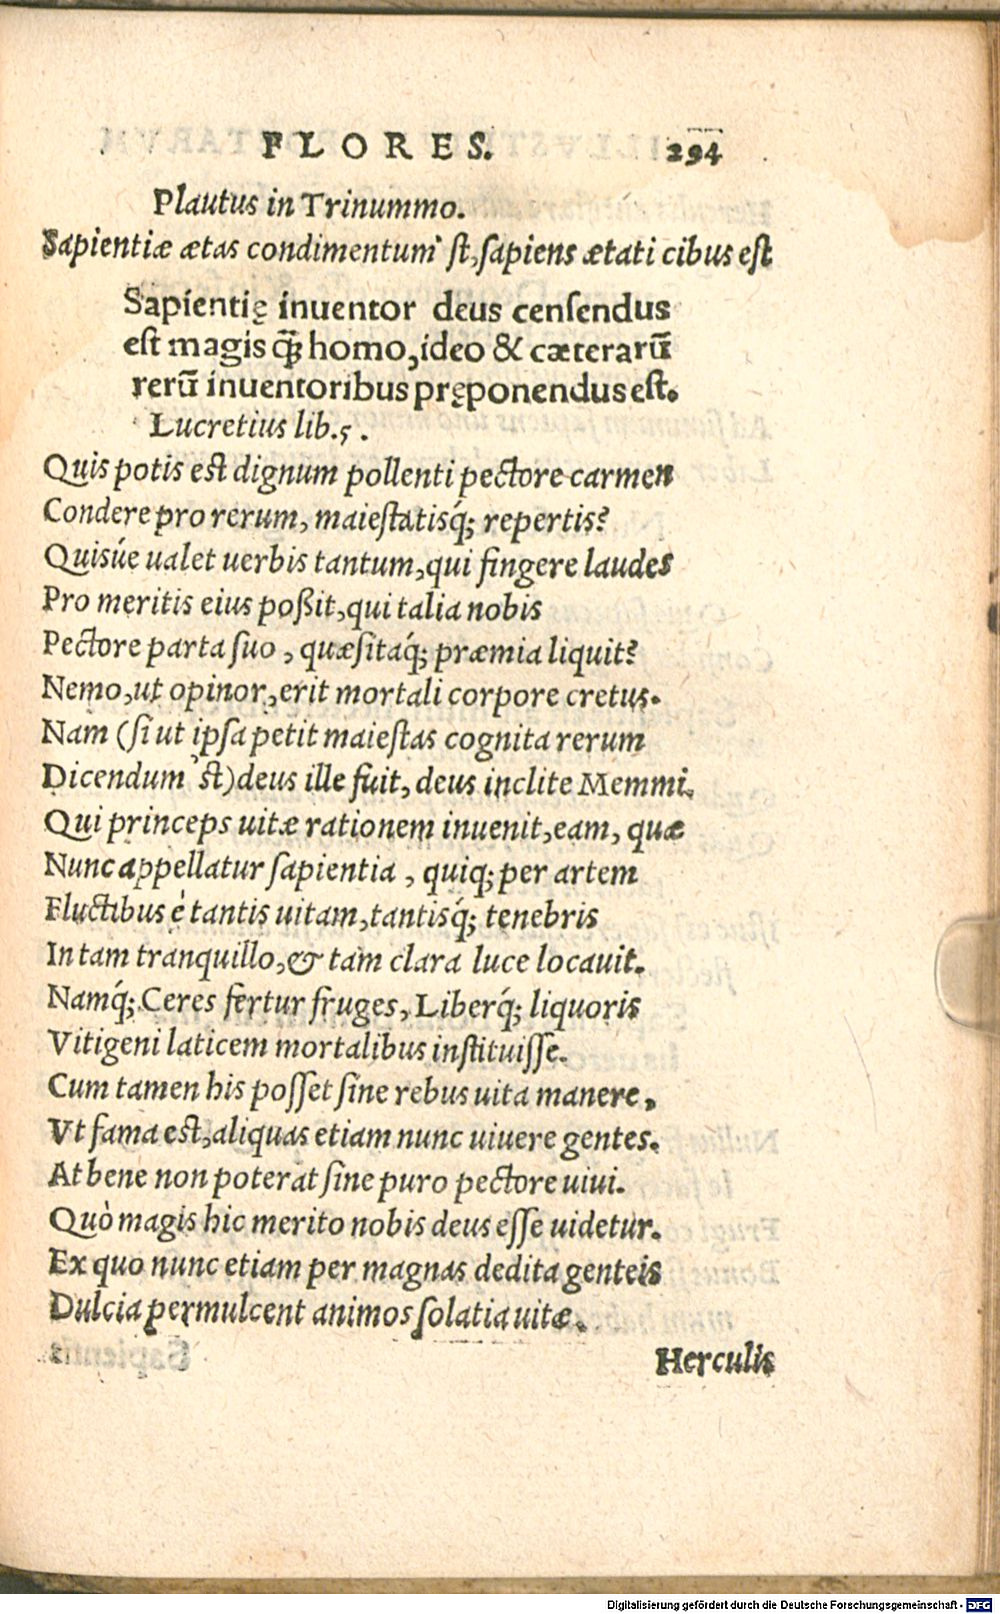 FLORES. 294
Plautus in Trinummo.
Sapientiæ ætas condimentum'st, sapiens ætati cibus est
Sapientię inuentor deus censendus
est magis q̃ꝫ homo, ideo & cæterarũ
rerũ inuentoribus pręponendus est.
Lucretius lib. 5.
Quis potis est dignum pollenti pectore carmen
Condere pro rerum, maiestatisq́; repertis?
Quisúe ualet uerbis tantum, qui fingere laudes
Pro meritis eius poßit, qui talia nobis
Pectore parta suo, quæsitaq́; præmia liquit?
Nemo, ut opinor, erit mortali corpore cretus.
Nam (si ut ipsa petit maiestas cognita rerum
Dicendum'st) deus ille fuit, deus inclite Memmi,
Qui princeps uitæ rationem inuenit, eam, quæ
Nunc appellatur sapientia, quiq; per artem
Fluctibus è tantis uitam, tantisq́; tenebris
In tam tranquillo, & tam clara luce locauit.
Namq́; Ceres fertur fruges, Liberq́; liquoris
Vitigeni laticem mortalibus instituisse.
Cum tamen his posset sine rebus uita manere,
Vt fama est, aliquas etiam nunc uiuere gentes.
At bene non poterat sine puro pectore uiui.
Quò magis hic merito nobis deus esse uidetur.
Ex quo nunc etiam per magnas dedita genteis
Dulcia permulcent animos solatia uitæ.
Herculis
Digitalisierung gefördert durch die Deutsche Forschungsgemeinschaft - DFG